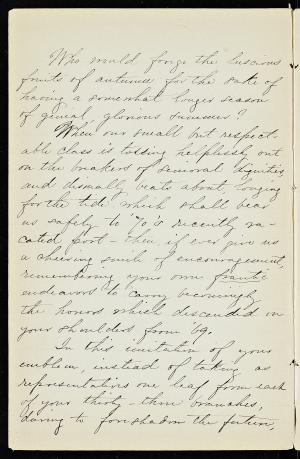 Who would forgo the luscious
fruits of autumn for the sake of
having a somewhat longer season
of genial, glorious summer?
When our small but respect-
able class is tossing helplessly out
on the breakers of senioral dignities,
and dismally beats about, longing
for the tide which shall bear
us safely to '70's recently va-
cated port – then, if ever give us
a cheering smile of encouragement,
remembering your own frantic
endeavors to carry becomingly
the honors which descended on
your shoulders from '69.
In this imitation of your
emblem, instead of taking as
representations one leaf from each
of your thirty-three branches,
daring to foreshadow the future,